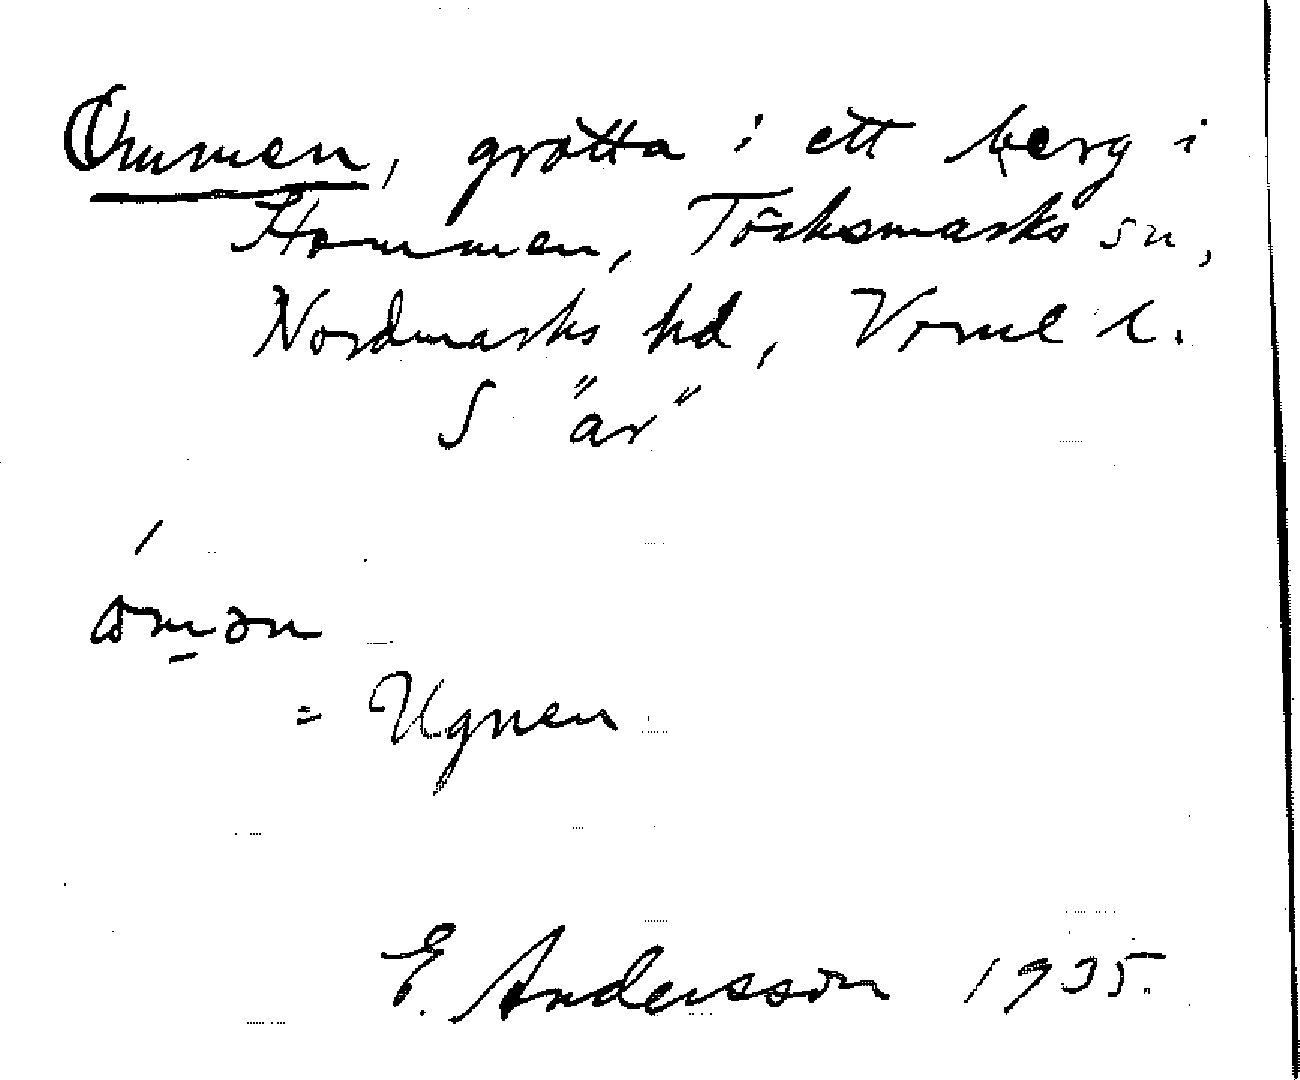 Ommen, grotta i ett berg i
Hommen, Töcksmarks sn,
Nordmarks hd, Vrml l.
S "är"
= Ugnen
E. Andersson 1935.